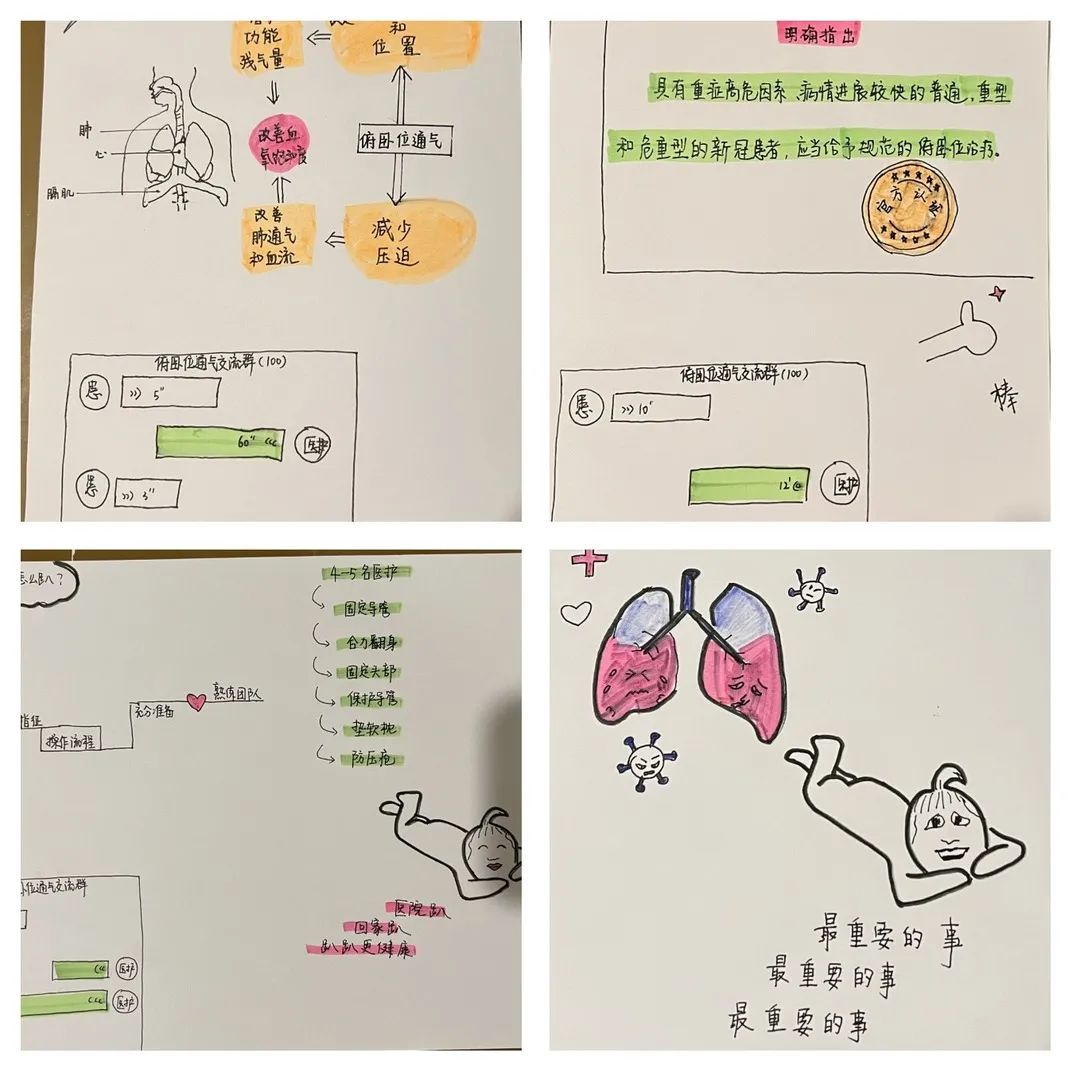 功能
残气量
和
位置
肺
心
膈肌
改善血
氧饱和度
俯卧位通气
改善
肺通气
和血流
减少
压迫
俯卧位通气交流群(100)
患
>>) 5"
60"
医护
患
>>) 3"
明确指出
具有重症高危因素、病情进展较快的普通,重型
和危重型的新冠患者,应当给予规范的俯卧位治疗。
官方认证
棒
俯卧位通气交流群(100)
患
>>) 10"
12'
医护
怎么趴?
4-5名医护
固定导管
合力翻身
固定头部
保护导管
垫软枕
防压疮
熟练团队
充分准备
指征
操作流程
卧位通气交流群
医护
医护
医院趴
回家趴
趴趴更健康
最重要的事
最重要的事
最重要的事